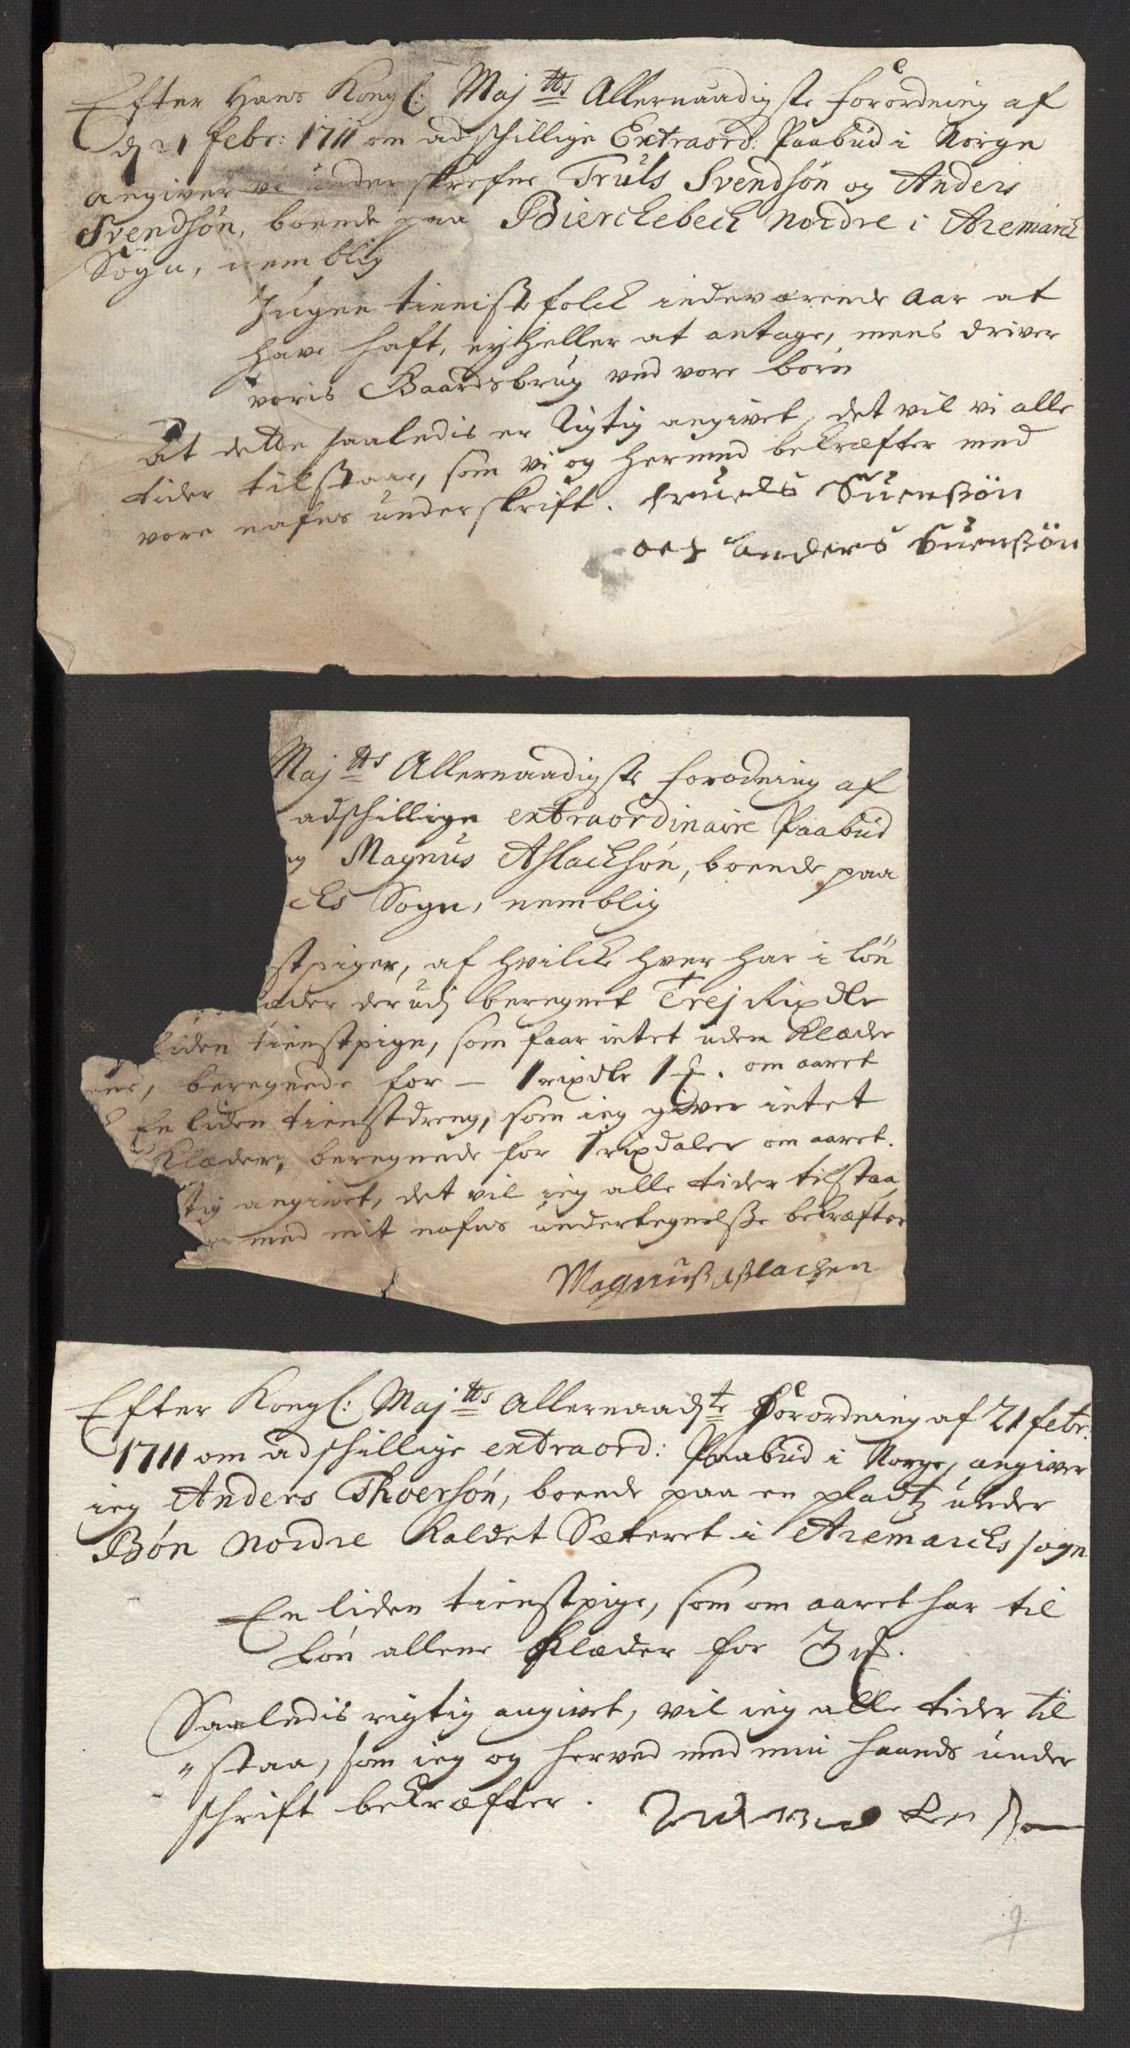 Efter Hans Kongl: Maj:tts Allernaadigste forordning af
d 21 febr: 1711 om adschillige Extraord: Paabud i Norge
angiver vi underskrefne Truls Svendsøn og Anders
Svendsøn, boende paa Bierckebeck Nordre i Aremarck
Sogn, nemblig
Ingen tienistefolck indeværende Aar at
have haft, ey heller at antage, mens driver
voris Gaardsbrug ved vore børn
At dette saaledis er Rigtig angivet, det vil vi alle
tider tilstaae, som vi og hermed bekræfter med
vore nafns underskrift. truels Suensøn
och anders Suensøn
Maj:tts Allernaadigste forordning af
adschillige extraordinaire Paabud
eg Magnus Aslacksøn, boende paa
cks Sogn, nemblig
stpiger, af hvilcke hver har i løn
æder der udj beregnet Trej Rixdlr
liden tienstpige, som faar intet uden Klæder
ene, beregnede for – 1 rixdlr 1 . om aaret
En liden tienstdreng, som ieg giver intet
Klæder, beregnede for 1 rixdaler om aaret.
tig angivet, det vil ieg alle tider tilstaa
med mit nafns undertegnelsse bekræfter
Magnuss Asslachsen
Efter Kongl: Maj:tts Allernaadste forordning af 21 febr:
1711 om adschillige extraord: Paabud i Norge, angiver
ieg Anders Thoersøn, boende paa en pladtz under
Bøn Nordre kaldet Sæteret i Aremarcks sogn
En liden tienstpige, som om aaret har til
Løn allene Klæder for 3
Saaledis rigtig angivet, vil ieg alle tider til
"staa, som ieg og herved med min haands under
schrift bekræfter.
9